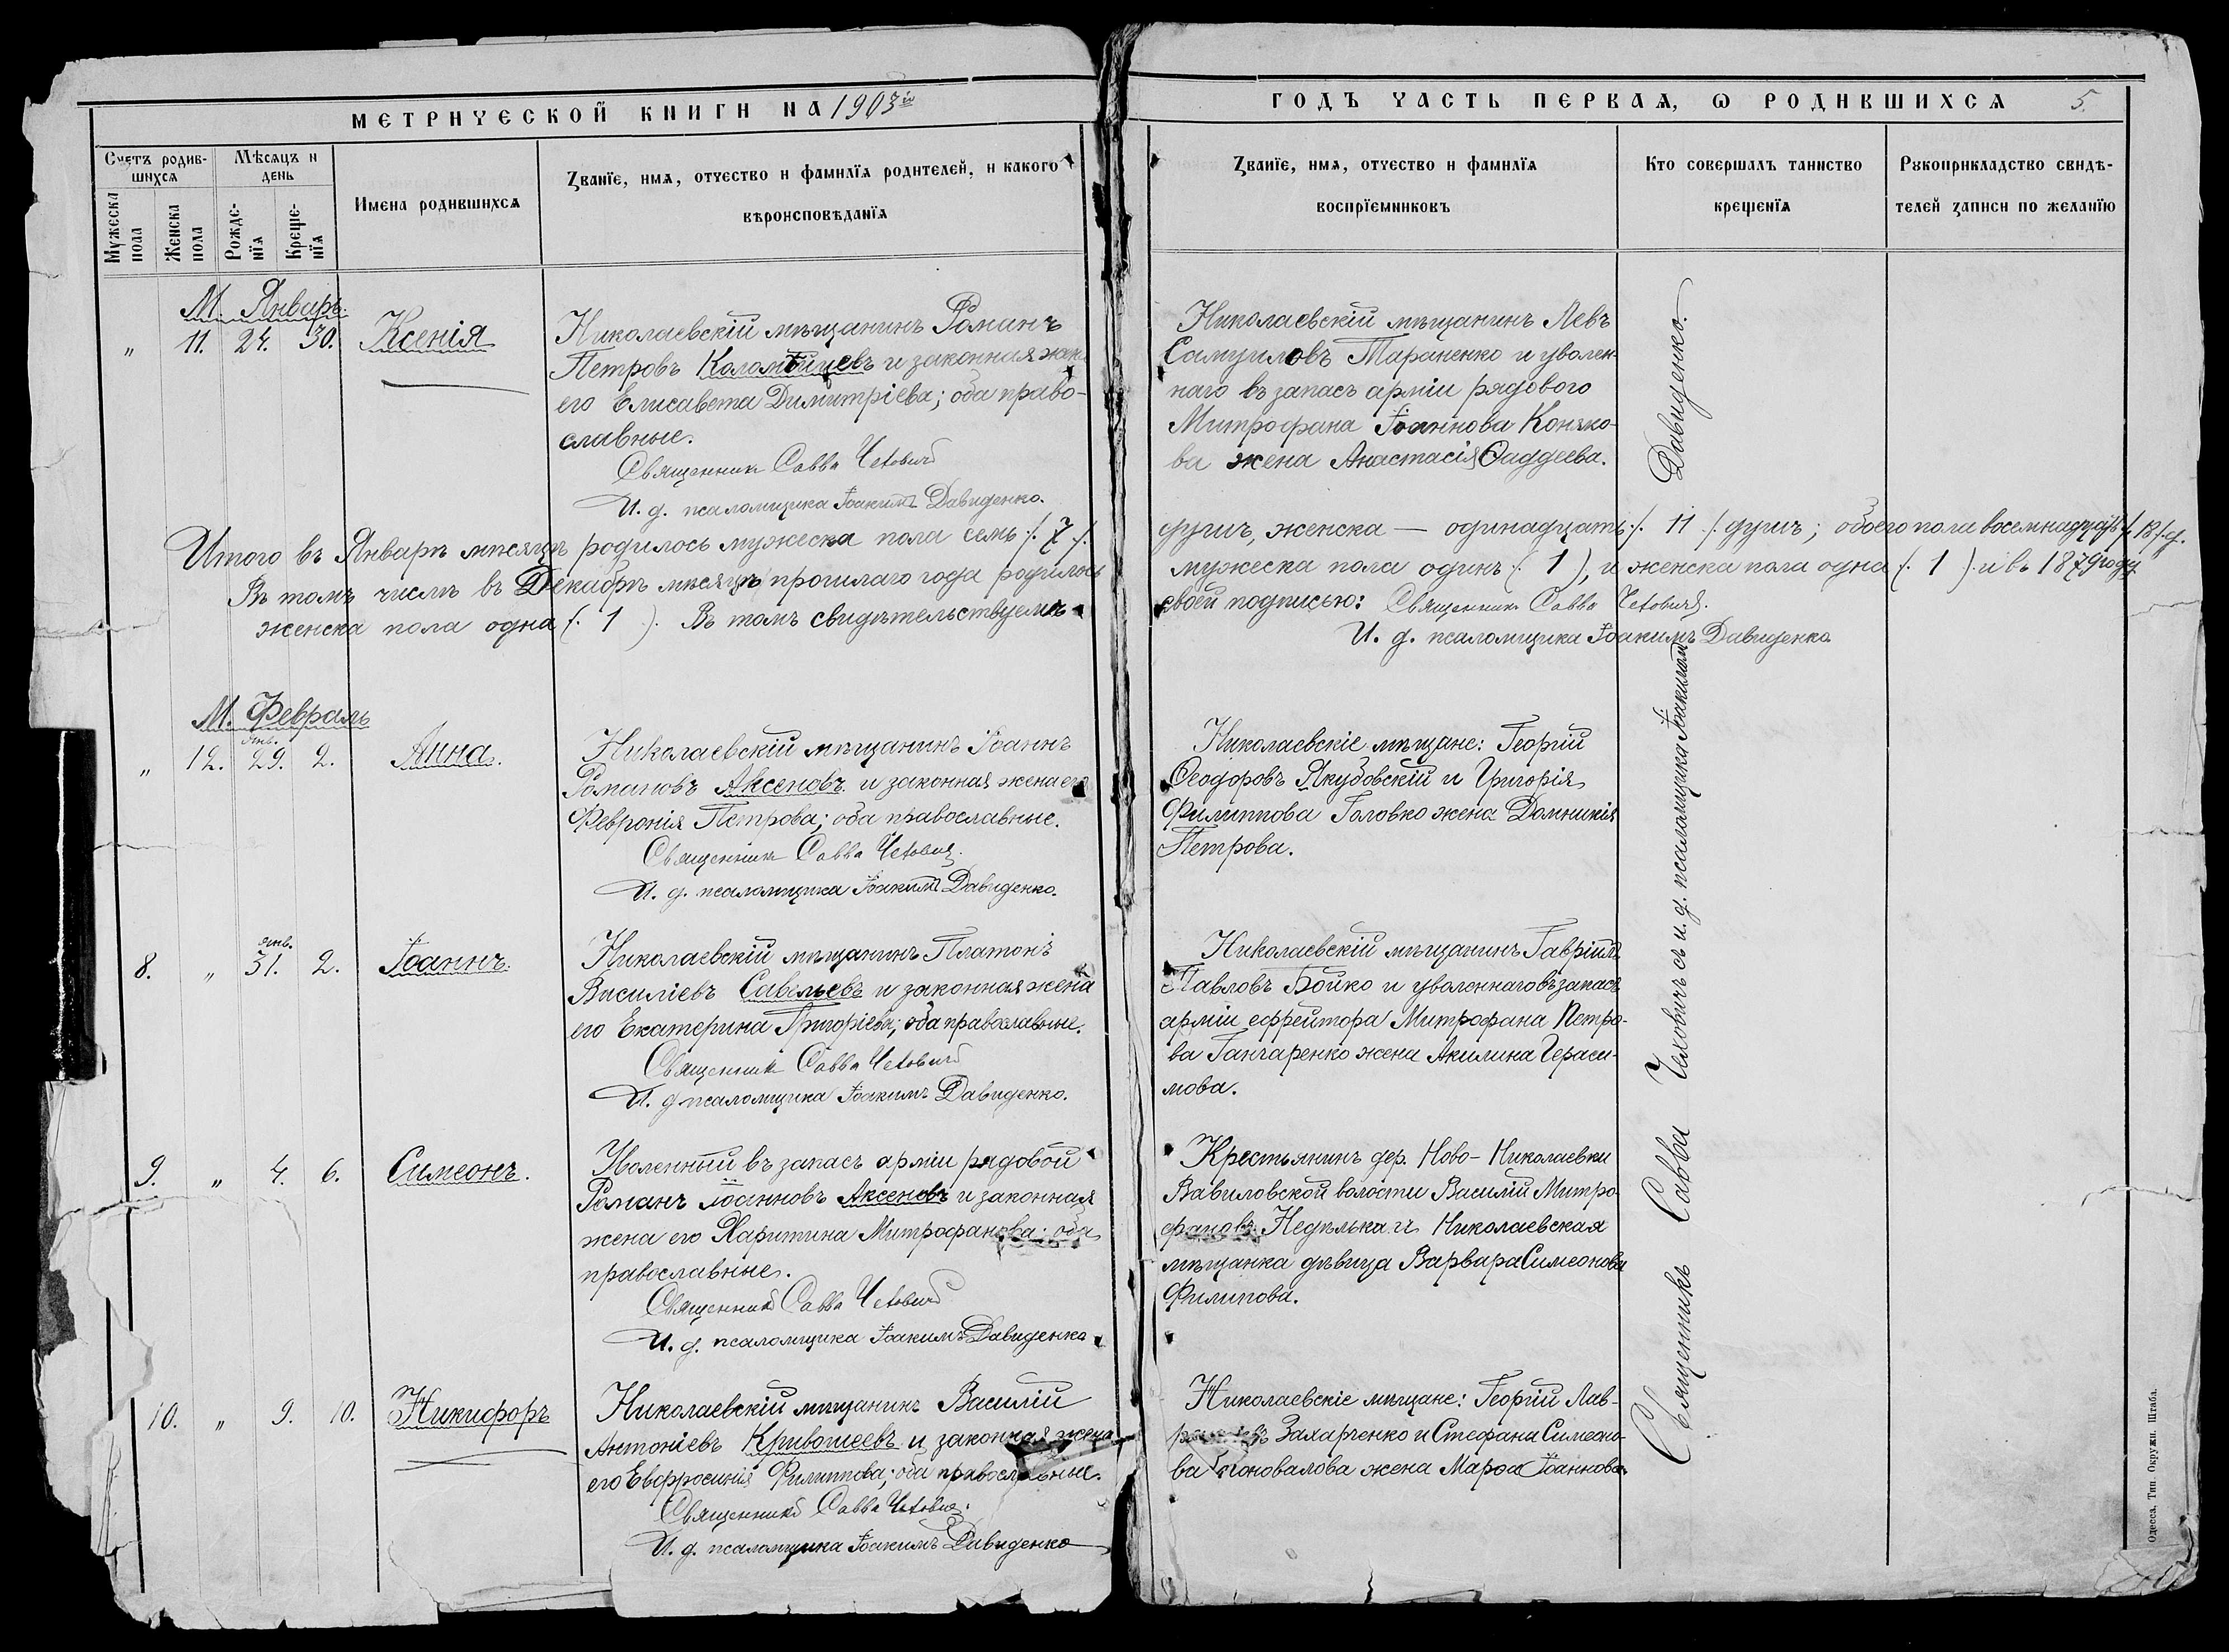 МЕТРИЧЕСКОЙ КНИГИ НА 1903й
ГОДЪ ЧАСТЬ ПЕРВАЯ, Ѡ РОДИВШИХСЯ 5.
Счетъ родив-
шихся
Мѣсяцъ и
день
Мужеска
пола
Женска
пола
Рожде-
нїя
Креще-
нїя
Имена родившихся
Званїе, имя, отчество и фамилїя родителей, и какого
вѣроисповѣданїя
Званїе, имя, отчество и фамилїя
воспрїемниковъ
Кто совершалъ таинство
крещенїя
Рукоприкладство свидѣ-
телей записи по желанїю
М. Январь.
„ 11. 24. 30. Ксенія
Николаевскій мѣщанинъ Романъ
Петровъ Коломейцевъ и законная жена
его Елисавета Димитріева; оба право-
славные.
Священникъ Савва Чеховичъ
И. д. псаломщика Іоакимъ Давиденко.
Николаевскій мѣщанинъ Левъ
Самуиловъ Тараненко и уволен-
наго въ запасъ арміи рядового
Митрофана Іоаннова Коняко-
ва жена Анастасія Ѳаддеева.
Итого въ Январѣ мѣсяцѣ родилось мужеска пола семь /. 7 /.
душъ, женска — одинадцать /. 11 /. душъ; обоего пола восемнадцать /. 18 /. д.
Въ томъ числѣ въ Декабрѣ мѣсяцѣ прошлаго года родилось
мужеска пола одинъ (. 1 ), и женска пола одна (. 1 ). и въ 1879 году
женска пола одна (. 1 ). Въ томъ свидѣтельствуемъ
своей подписью: Священникъ Савва Чеховичъ.
И. д. псаломщика Іоакимъ Давиденко
М. Февраль
янв.
„ 12. 29. 2. Анна.
Николаевскій мѣщанинъ Іоаннъ
Романовъ Аксеновъ и законная жена его
Февронія Петрова; оба православные.
Священникъ Савва Чеховичъ.
И. д. псаломщика Іоакимъ Давиденко.
Николаевскіе мѣщане: Георгій
Ѳеодоровъ Якубовскій и Григорія
Филиппова Головко жена Домникія
Петрова.
янв.
8. „ 31. 2. Іоаннъ.
Николаевскій мѣщанинъ Платонъ
Василіевъ Савельевъ и законная жена
его Екатерина Григоріева; оба православные.
Священникъ Савва Чеховичъ
И. д. псаломщика Іоакимъ Давиденко.
Николаевскій мѣщанинъ Гавріилъ
Павловъ Бойко и уволеннаго въ запасъ
арміи ефрейтора Митрофана Петро-
ва Ганчаренко жена Акилина Гераси-
мова.
9. „ 4. 6. Симеонъ.
Уволенный въ запасъ арміи рядовой
Романъ Іоанновъ Аксеновъ и законная
жена его Харитина Митрофанова; оба
православные.
Священникъ Савва Чеховичъ
И. д. псаломщика Іоакимъ Давиденко
Крестьянинъ дер. Ново-Николаевки
Вавиловской волости Василій Митро-
фановъ Недѣлька и Николаевская
мѣщанка дѣвица Варвара Симеонова
Филипова.
10. „ 9. 10. Никифоръ
Николаевскій мѣщанинъ Василій
Антоніевъ Кривошеевъ и законная жена
его Евфросинія Филиппова; оба православные.
Священникъ Савва Чеховичъ.
И. д. псаломщика Іоакимъ Давиденко
Николаевскіе мѣщане: Георгій Лав-
Захарченко и Стефана Симеоно-
ва Коновалова жена Марѳа Іоаннова.
Священникъ Савва Чеховичъ съ и. д. псаломщика Іоакимомъ Давиденко.
Одесса, Тип. Окружн. Штаба.